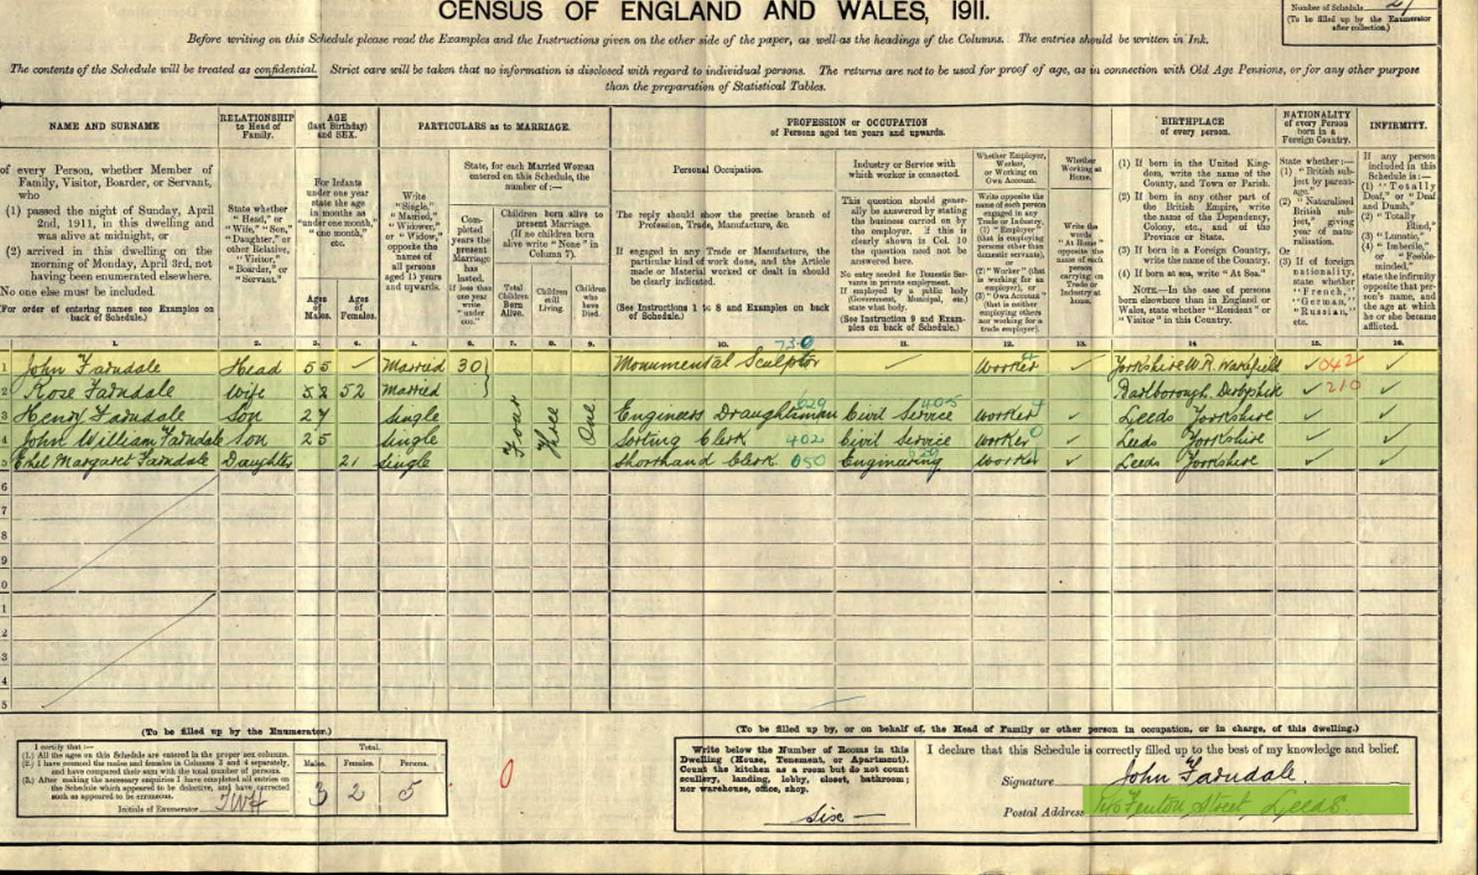 CENSUS OF ENGLAND AND WALES, 1911.
Number of Schedule
(To be filled up by the Enumerator after collection.)
Before writing on this Schedule please read the Examples and the Instructions given on the other side of the paper, as well as the headings of the Columns. The entries should be written in Ink.
The contents of the Schedule will be treated as confidential. Strict care will be taken that no information is disclosed with regard to individual persons. The returns are not to be used for proof of age, as in connection with Old Age Pensions, or for any other purpose
than the preparation of Statistical Tables.
NAME AND SURNAME
of every Person, whether Member of
Family, Visitor, Boarder, or Servant,
who
(1) passed the night of Sunday, April
2nd, 1911, in this dwelling and
was alive at midnight, or
(2) arrived in this dwelling on the
morning of Monday, April 3rd, not
having been enumerated elsewhere.
No one else must be included.
(For order of entering names see Examples on
back of Schedule.)
RELATIONSHIP
to Head of
Family.
State whether
"Head," or
"Wife," "Son,"
"Daughter," or
other Relative,
"Visitor,"
"Boarder," or
"Servant."
AGE
(last Birthday)
and SEX.
For Infants
under one year
state the age
in months as
"under one month,"
"one month,"
etc.
Ages
of
Males.
Ages
of
Females.
PARTICULARS as to MARRIAGE.
Write
"Single,"
"Married,"
"Widower,"
or "Widow,"
opposite the
names of
all persons
aged 15 years
and upwards.
State, for each Married Woman
entered on this Schedule, the
number of:—
Completed
years the
present
Marriage
has
lasted.
If less than
one year
write
"under
one."
Children born alive to
present Marriage.
(If no children born
alive write "None" in
Column 7).
Total
Children
Born
Alive.
Children
still
Living.
Children
who
have
Died.
PROFESSION or OCCUPATION
of Persons aged ten years and upwards.
Personal Occupation.
The reply should show the precise branch of
Profession, Trade, Manufacture, &c.
If engaged in any Trade or Manufacture, the
particular kind of work done, and the Article
made or Material worked or dealt in should
be clearly indicated.
(See Instructions 1 to 8 and Examples on back
of Schedule.)
Industry or Service with
which worker is connected.
This question should generally be answered by stating
the business carried on by
the employer. If this is
clearly shown in Col. 10
the question need not be
answered here.
No entry needed for Domestic Servants in private employment.
If employed by a public body
(Government, Municipal, etc.)
state what body.
(See Instruction 9 and Examples on back of Schedule.)
Whether Employer,
Worker,
or Working on
Own Account.
Write opposite the
name of each person
engaged in any
Trade or Industry,
(1) "Employer"
(that is employing
persons other than
domestic servants),
or
(2) "Worker" (that
is working for an
employer), or
(3) "Own Account"
(that is neither
employing others
nor working for a
trade employer).
Whether
Working at
Home.
Write the
words
"At Home"
opposite the
name of each
person
carrying on
Trade or
Industry at
home.
BIRTHPLACE
of every person.
(1) If born in the United Kingdom, write the name of the
County, and Town or Parish.
(2) If born in any other part of
the British Empire, write
the name of the Dependency,
Colony, etc., and of the
Province or State.
(3) If born in a Foreign Country,
write the name of the Country.
(4) If born at sea, write "At Sea."
NOTE.—In the case of persons
born elsewhere than in England or
Wales, state whether "Resident" or
"Visitor" in this Country.
NATIONALITY
of every Person
born in a
Foreign Country.
State whether:—
(1) "British subject by parentage."
(2) "Naturalised
British subject," giving
year of naturalisation.
Or
(3) If of foreign
nationality,
state whether
"French,"
"German,"
"Russian,"
etc.
INFIRMITY.
If any person
included in this
Schedule is:—
(1) "Totally
Deaf," or "Deaf
and Dumb,"
(2) "Totally
Blind,"
(3) "Lunatic,"
(4) "Imbecile,"
or "Feeble-minded,"
state the infirmity
opposite that person's name, and
the age at which
he or she became
afflicted.
1. 2. 3. 4. 5. 6. 7. 8. 9. 10. 11. 12. 13. 14. 15. 16.
730
1 John Farndale Head 55 Married 30 Monumental Sculptor Worker Yorkshire W.R. Wakefield 042
2 Rose Farndale Wife 52 Married Barlborough, Derbyshire 210
3 Henry Farndale Son 27 Single Engineers Draughtsman Civil Service Worker Leeds Yorkshire
4 John William Farndale Son 25 Single Sorting Clerk 402 Civil Service Worker Leeds Yorkshire
5 Ethel Margaret Farndale Daughter 21 Single Shorthand Clerk 050 Engineering Worker Leeds Yorkshire
Four Three One
6
7
8
9
0
1
2
3
4
5
(To be filled up by the Enumerator.)
I certify that:—
(1.) All the ages on this Schedule are entered in the proper sex columns.
(2.) I have counted the males and females in Columns 3 and 4 separately,
and have compared their sum with the total number of persons.
(3.) After making the necessary enquiries I have completed all entries on
the Schedule which appeared to be defective, and have corrected
such as appeared to be erroneous.
Initials of Enumerator
Total.
Males. Females. Persons.
3 2 5
0
(To be filled up by, or on behalf of, the Head of Family or other person in occupation, or in charge, of this dwelling.)
Write below the Number of Rooms in this
Dwelling (House, Tenement, or Apartment).
Count the kitchen as a room but do not
count scullery, landing, lobby, closet, bathroom;
nor warehouse, office, shop.
Six —
I declare that this Schedule is correctly filled up to the best of my knowledge and belief.
Signature John Farndale.
Postal Address Fenton Street Leeds